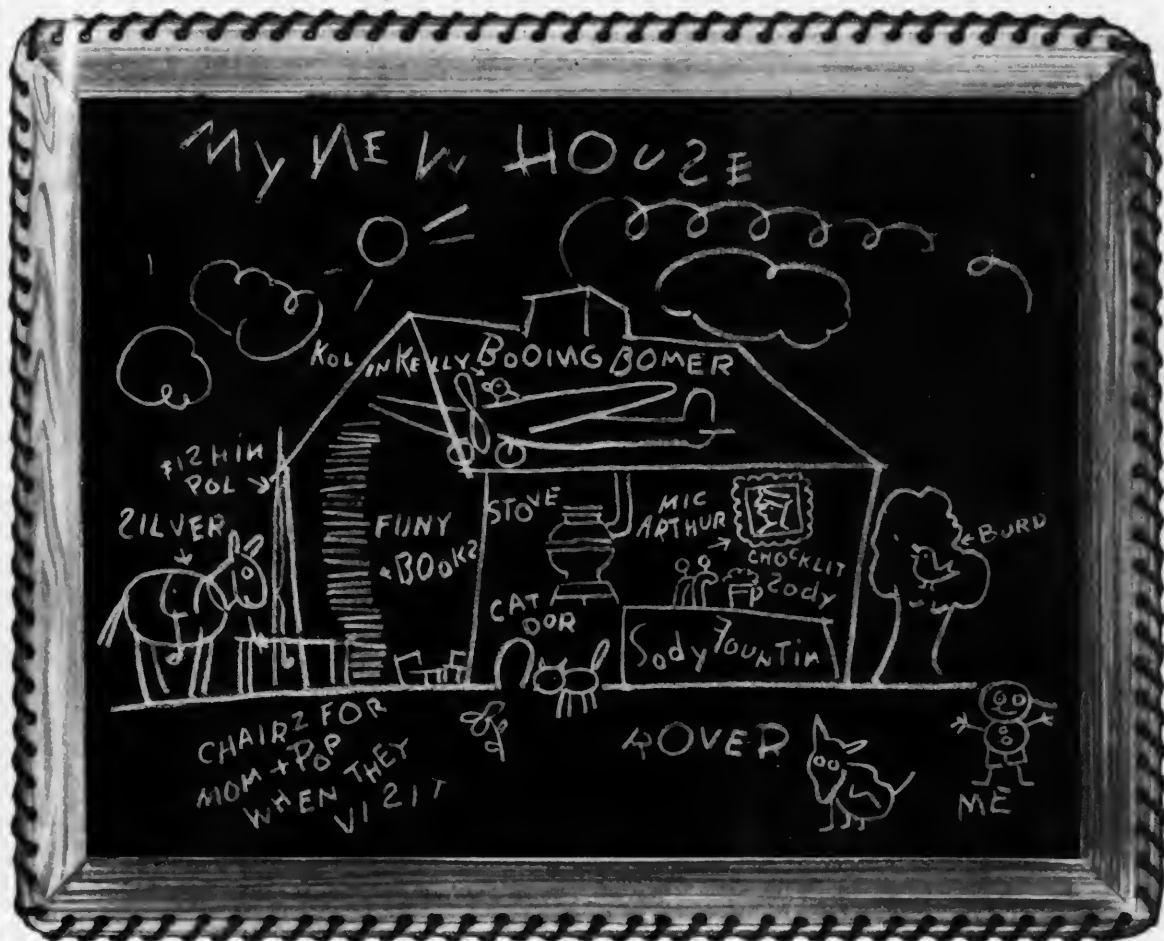 MY NEW HOUZE
KOLINKELLY
BOOING BOMER
FI2HIN
POL
ZILVER
FUNY
BOOKZ
STOVE
MIC
ARTHUR
CHOCKLIT
Zody
BURD
CAT
DOR
Sody FOUNTIN
CHAIRZ FOR
MOM + POP
WHEN THEY
VIZIT
ROVER
ME